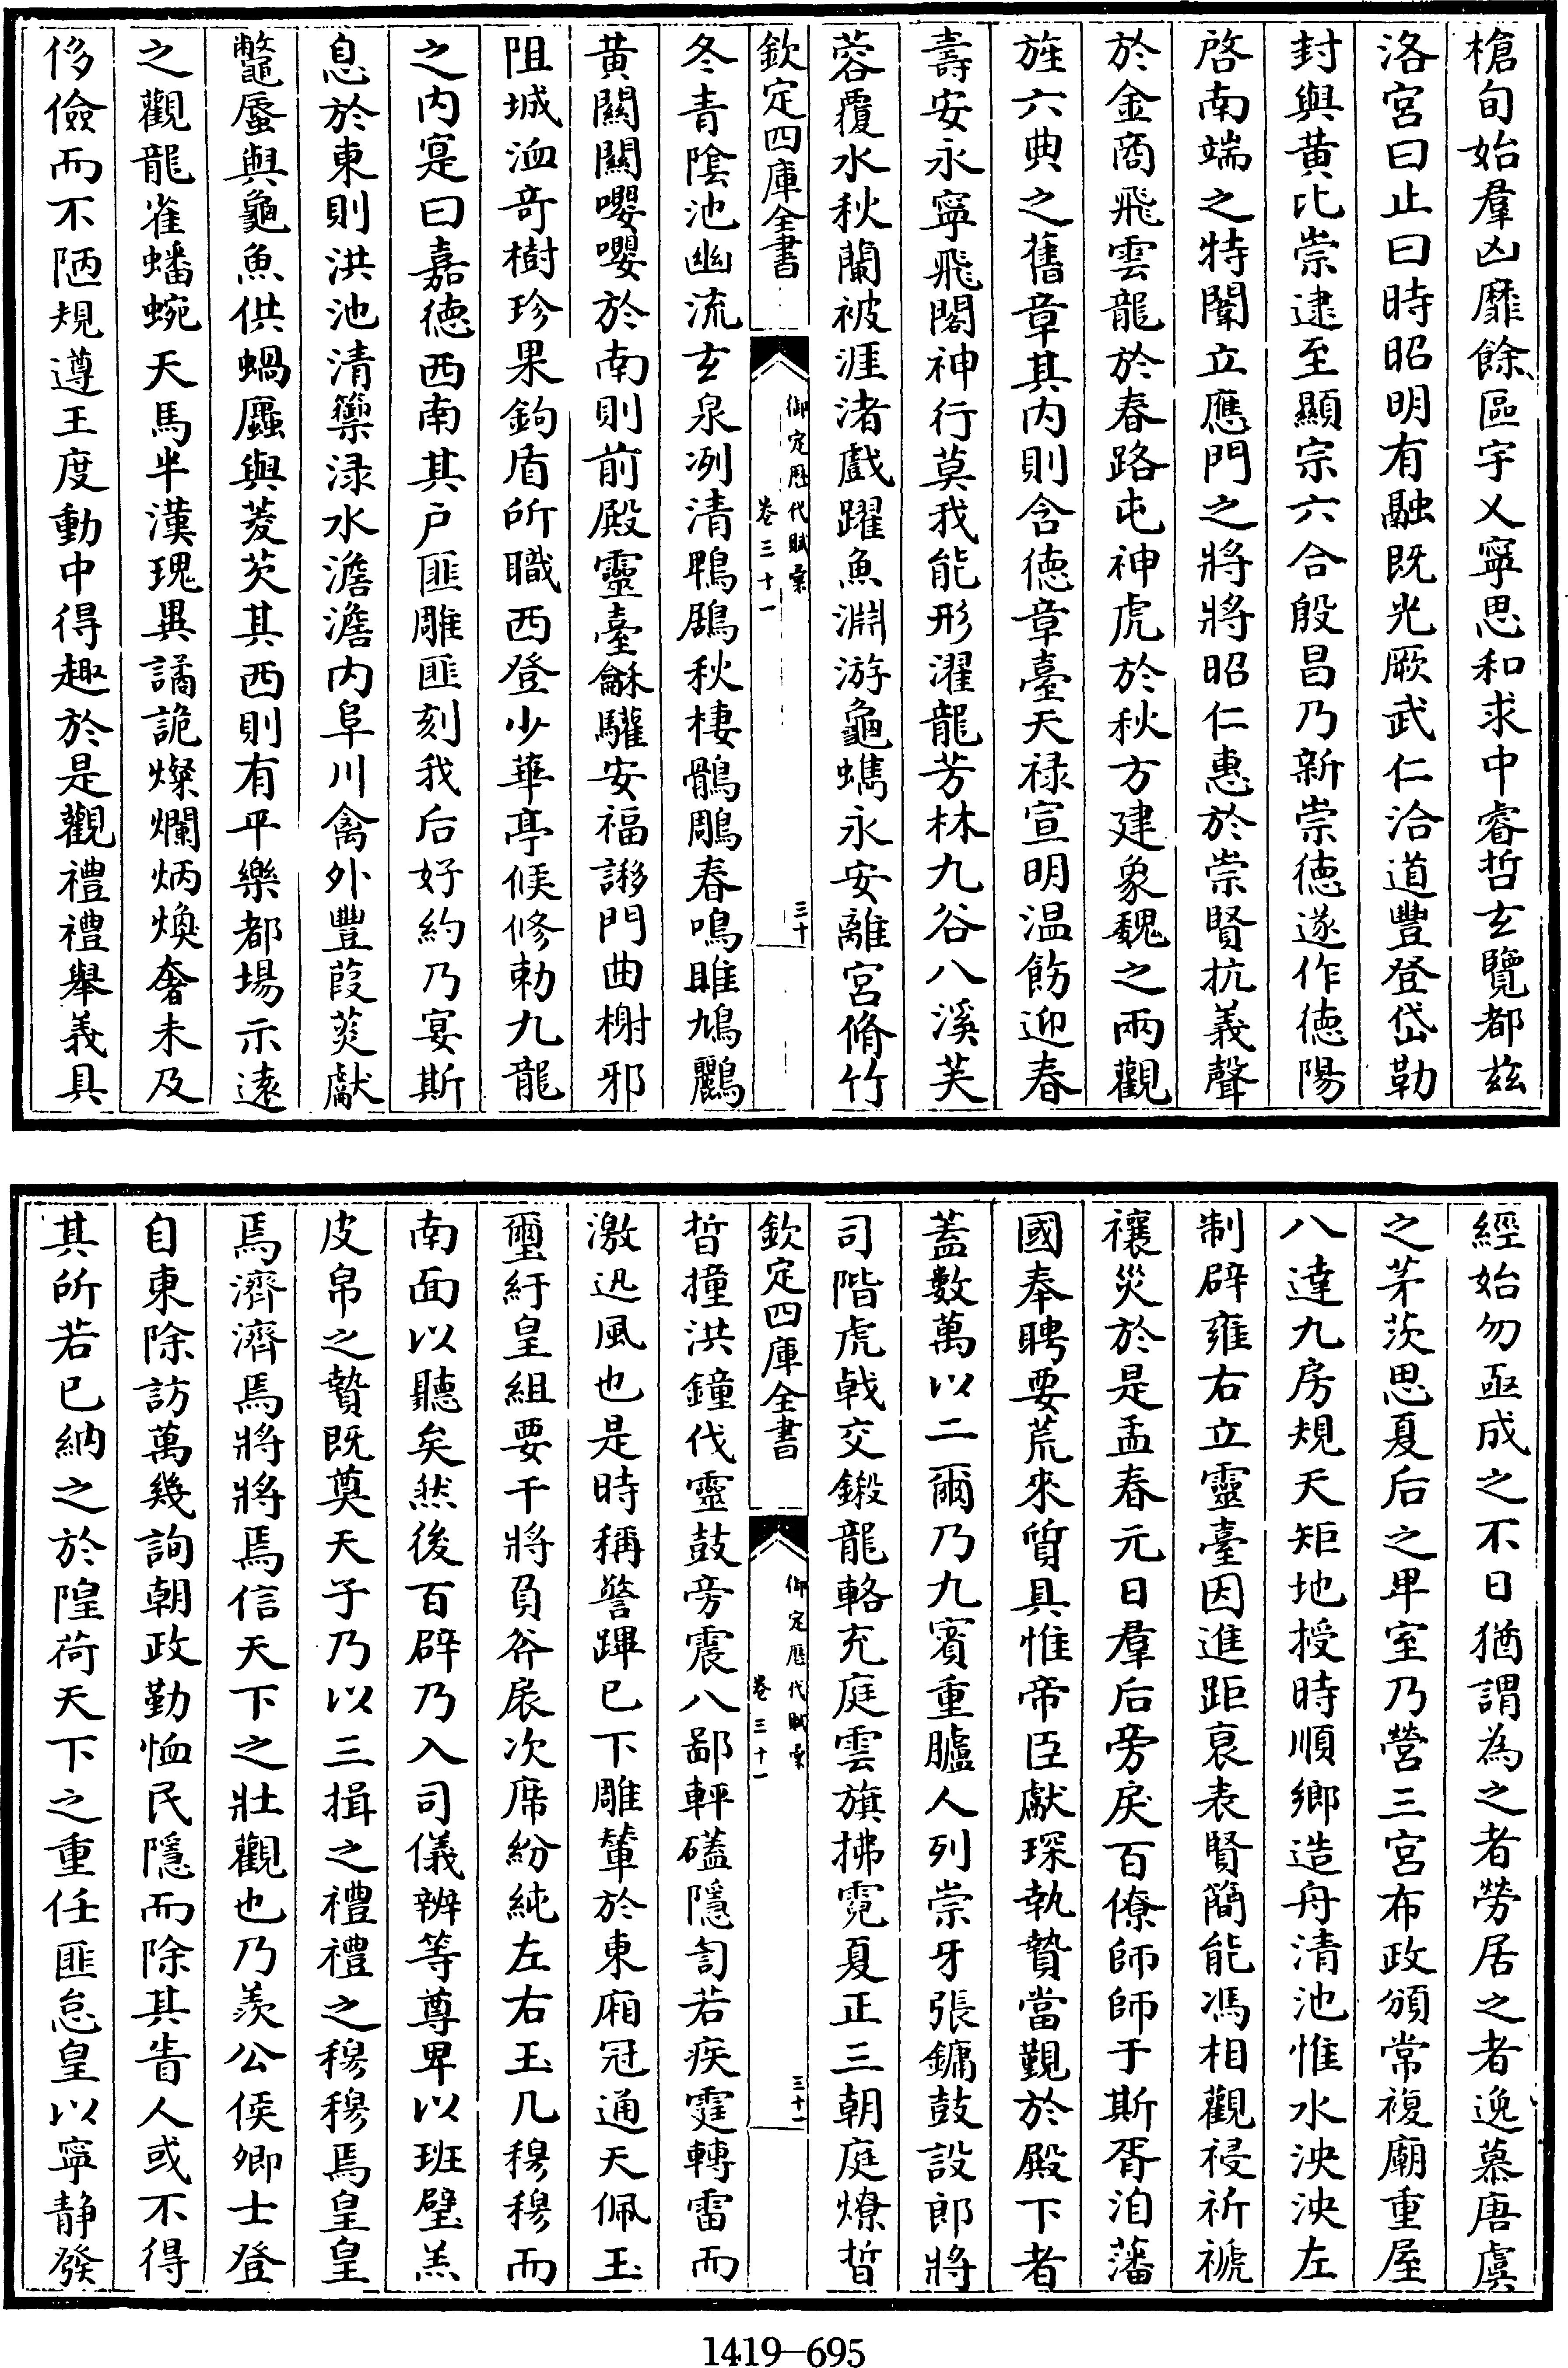 槍旬始羣凶靡餘區宇乂寧思和求中睿哲玄覽都兹
洛宮曰止曰時昭明有融既光厥武仁洽道豐登岱勒
封與黄比崇逮至顯宗六合殷昌乃新崇徳遂作徳陽
啓南端之特闈立應門之將將昭仁惠於崇賢抗義聲
於金商飛雲龍於春路屯神虎於秋方建象魏之兩觀
旌六典之舊章其内則含徳章臺天禄宣明温飭迎春
壽安永寧飛閣神行莫我能形濯龍芳林九谷八溪芙
蓉覆水秋蘭被涯渚戲躍魚淵游龜蠵永安離宮脩竹
欽定四庫全書
御定歴代賦彙
卷三十一
三十
冬青陰池幽流玄泉冽清鵯鶋秋棲鶻鵰春鳴雎鳩鸝
黄關關嚶嚶於南則前殿靈臺龢驩安福謻門曲榭邪
阻城洫奇樹珍果鉤盾所職西登少華亭候修勅九龍
之内寔曰嘉徳西南其户匪雕匪刻我后好約乃宴斯
息於東則洪池清籞渌水澹澹内阜川禽外豐葭菼獻
鼈蜃與龜魚供蝸蠯與菱芡其西則有平樂都場示遠
之觀龍雀蟠蜿天馬半漢瑰異譎詭燦爛炳煥奢未及
侈儉而不陋規遵王度動中得趣於是觀禮禮舉義具
經始勿亟成之不日猶謂為之者勞居之者逸慕唐虞
之茅茨思夏后之卑室乃營三宮布政頒常複廟重屋
八達九房規天矩地授時順鄉造舟清池惟水泱泱左
制辟雍右立靈臺因進距衰表賢簡能馮相觀祲祈禠
禳災於是孟春元日羣后旁戾百僚師師于斯胥洎藩
國奉聘要荒來質具惟帝臣獻琛執贄當覲於殿下者
蓋數萬以二爾乃九賓重臚人列崇牙張鏞鼓設郎將
司階虎戟交鎩龍輅充庭雲旗拂霓夏正三朝庭燎晢
欽定四庫全書
御定歴代賦彙
卷三十一
三十一
晢撞洪鐘伐靈鼓旁震八鄙軯礚隱訇若疾霆轉雷而
激迅風也是時稱警蹕已下雕輦於東廂冠通天佩玉
璽紆皇組要干將負斧扆次席紛純左右玉几穆穆而
南面以聽矣然後百辟乃入司儀辨等尊卑以班璧羔
皮帛之贄既奠天子乃以三揖之禮禮之穆穆焉皇皇
焉濟濟焉將將焉信天下之壯觀也乃羨公侯卿士登
自東除訪萬幾詢朝政勤恤民隱而除其眚人或不得
其所若已納之於隍荷天下之重任匪怠皇以寧静發
1419-695